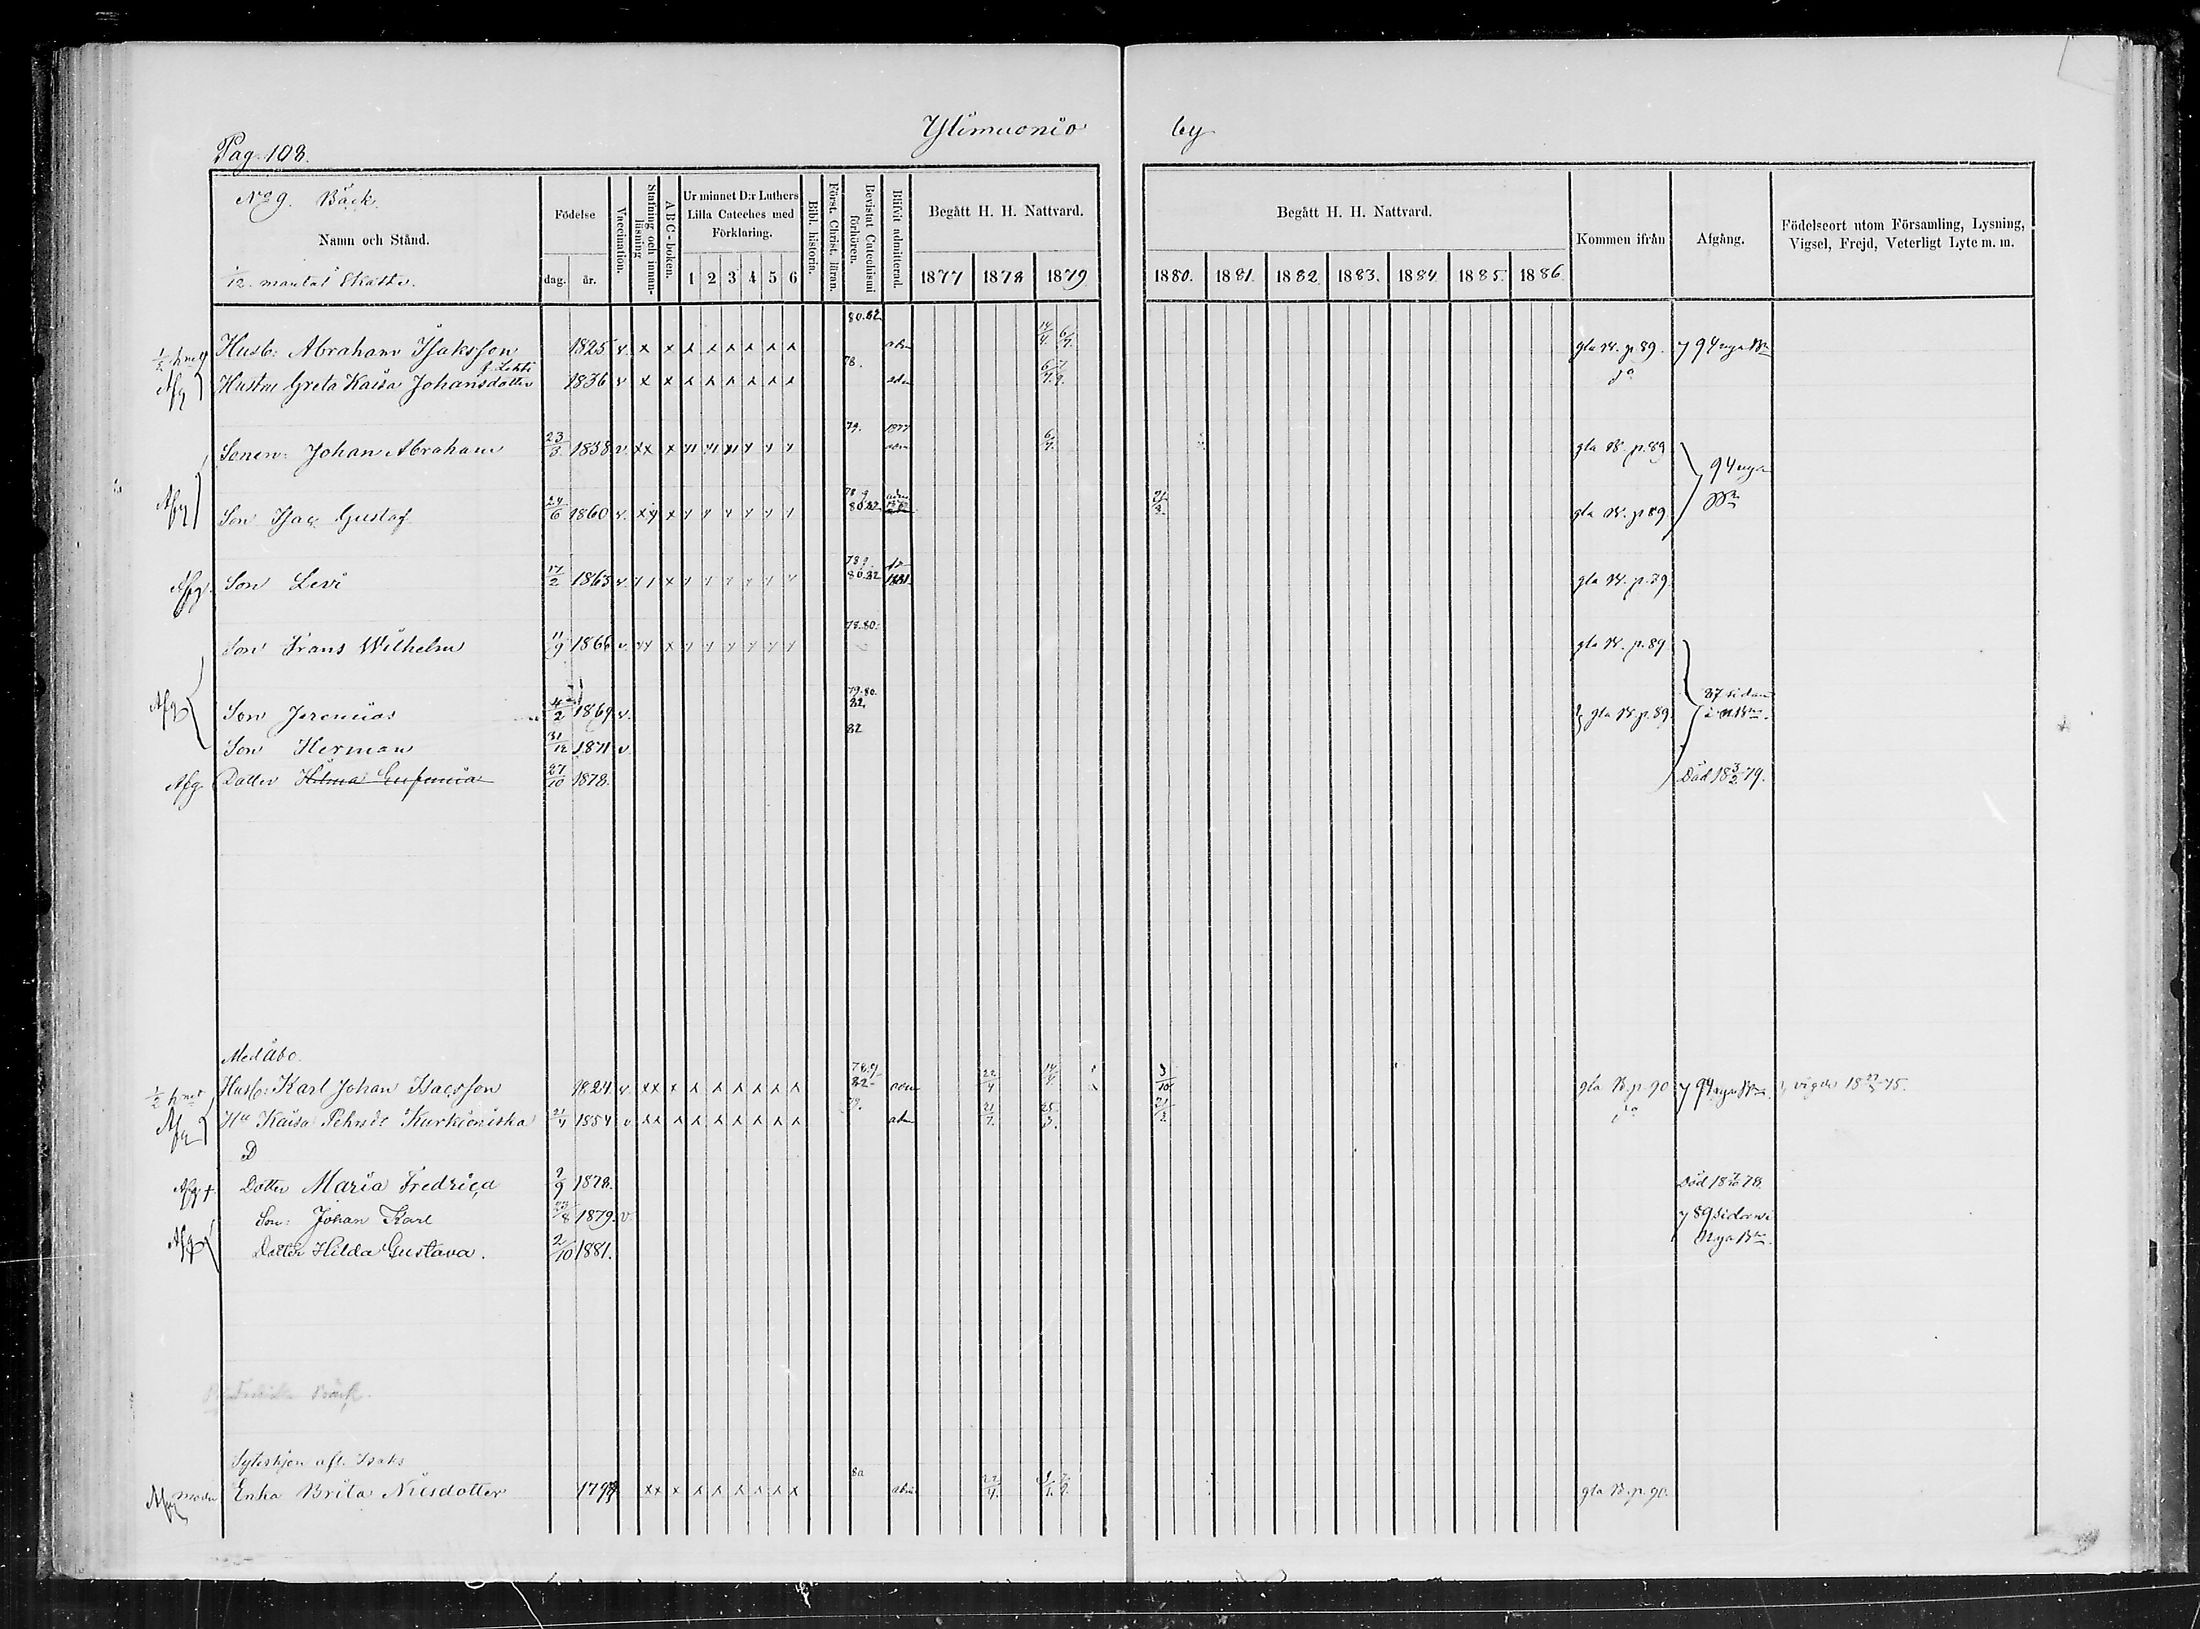 Ylimuonio by
Pag. 108.
No 9. Bäck.
Namn och Stånd.
1/12 mantal Skatte.
Födelse
dag. år.
Vaccination.
Stafning och innan-läsning
ABC-boken.
Ur minnet D:r Luthers Lilla Cateches med Förklaring.
1 2 3 4 5 6
Bibl. historia.
Först. Christ. läran.
Bevistat Catechismi förhören.
Blifvit admitterad.
Begått H. H. Nattvard.
1877 1878 1879
Begått H. H. Nattvard.
1880. 1881. 1882. 1883. 1884. 1885. 1886.
Kommen ifrån
Afgång.
Födelseort utom Församling, Lysning, Vigsel, Frejd, Veterligt Lyte m. m.
80.82
Husb: Abraham Isaksson 1825 v. x x x x x x x x adm 14/4 6/7 gla B. p. 89. 94 nya Bn
Afg Hustru Greta Kaisa Johansdotter 1836 v x x x x x x x x 78. adm 6/7 do
Sonen: Johan Abraham 23/3 1858 v. xx x 79. 1877 adm 6/7. gla B. p. 89 94 nya Bn
Afg Son Isac Gustaf 24/6 1860 v. x 78 9 80.82 21/3 gla B. p 89
Afg. Son Levi 17/2 1863 v. x 78 9. 80.82 1881. gla B. p. 89.
Son Frans Wilhelm 11/9 1866 v. x 78.80. gla B. p. 89
Afg Son Jeremias 4/2 1869 v. 79.80. 82. gla B. p. 89. 87 sidan i n. Bn.
Son Herman 31/12 1871 v 82
Afg Dotter Hilma Eufemia 27/10 1878. Död 18 3/2 79.
Medåbo.
Husb: Karl Johan Isacsson 1824 v xx x x x x x x x 78.9 82 adm 22/4 14/4 3/10 gla B. p. 90 94 nya Bn. vigde 18 75.
Afg Hu Kaisa Pehrsdr Kurkioniska 21/4 1854 v xx x x x x x x x 79. adm 21/7. 25/3. 21/3 do
D
Afg. Dotter Maria Fredrica 2/9 1878. Död 18 78.
Son: Johan Karl 1879. v. 89 sidan i
Afg Dotter Hilda Gustava. 2/10 1881. Nya Bn.
Bäck.
Syteshjon
Afg Enka Brita Nilsdotter xx x x x x x x x 80 adm 22/4. gla B. p. 90.